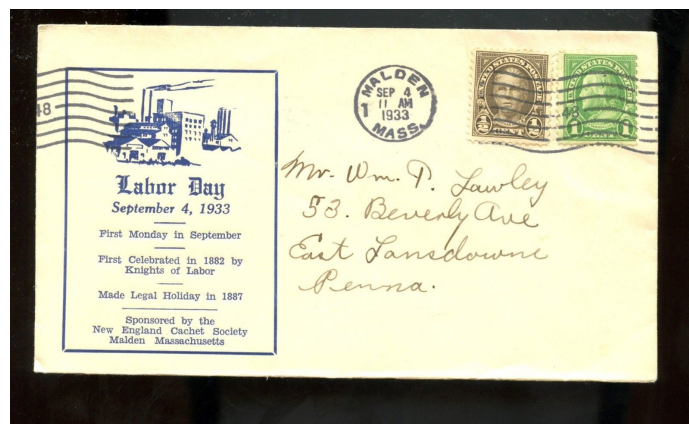 48
Labor Day
September 4, 1933
First Monday in September
First Celebrated in 1882 by
Knights of Labor
Made Legal Holiday in 1887
Sponsored by the
New England Cachet Society
Malden Massachusetts
MALDEN
SEP 4
11 AM
1933
1
MASS.
UNITED STATES POSTAGE
1/2
1/2
1
1
48
Mr. Wm. P. Lawley
53. Beverly Ave
East Lansdowne
Penna.